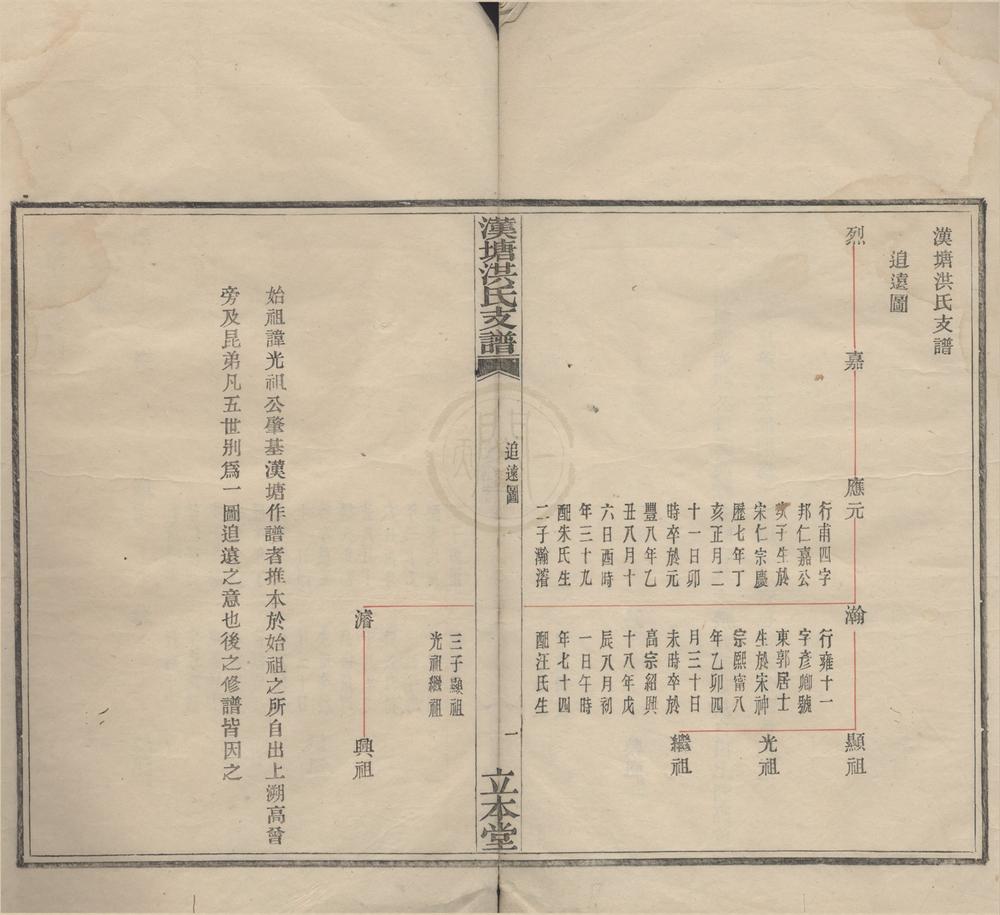 漢塘洪氏支譜
追遠圖
烈
嘉
應元
行甫四字
邦仁嘉公
次子生於
宋仁宗慶
歷七年丁
亥正月二
十一日卯
時卒於元
豐八年乙
丑八月十
六日酉時
年三十九
配朱氏生
二子瀚濬
瀚
行雍十一
字彥卿號
東郭居士
生於宋神
宗熙甯八
年乙卯四
月三十日
未時卒於
高宗紹興
十八年戊
辰八月初
一日午時
年七十四
配汪氏生
顯祖
光祖
繼祖
漢塘洪氏支譜
追遠圖
一
立本堂
三子顯祖
光祖繼祖
濬
興祖
始祖諱光祖公肇基漢塘作譜者推本於始祖之所自出上溯高曾
旁及昆弟凡五世別爲一圖追遠之意也後之修譜皆因之